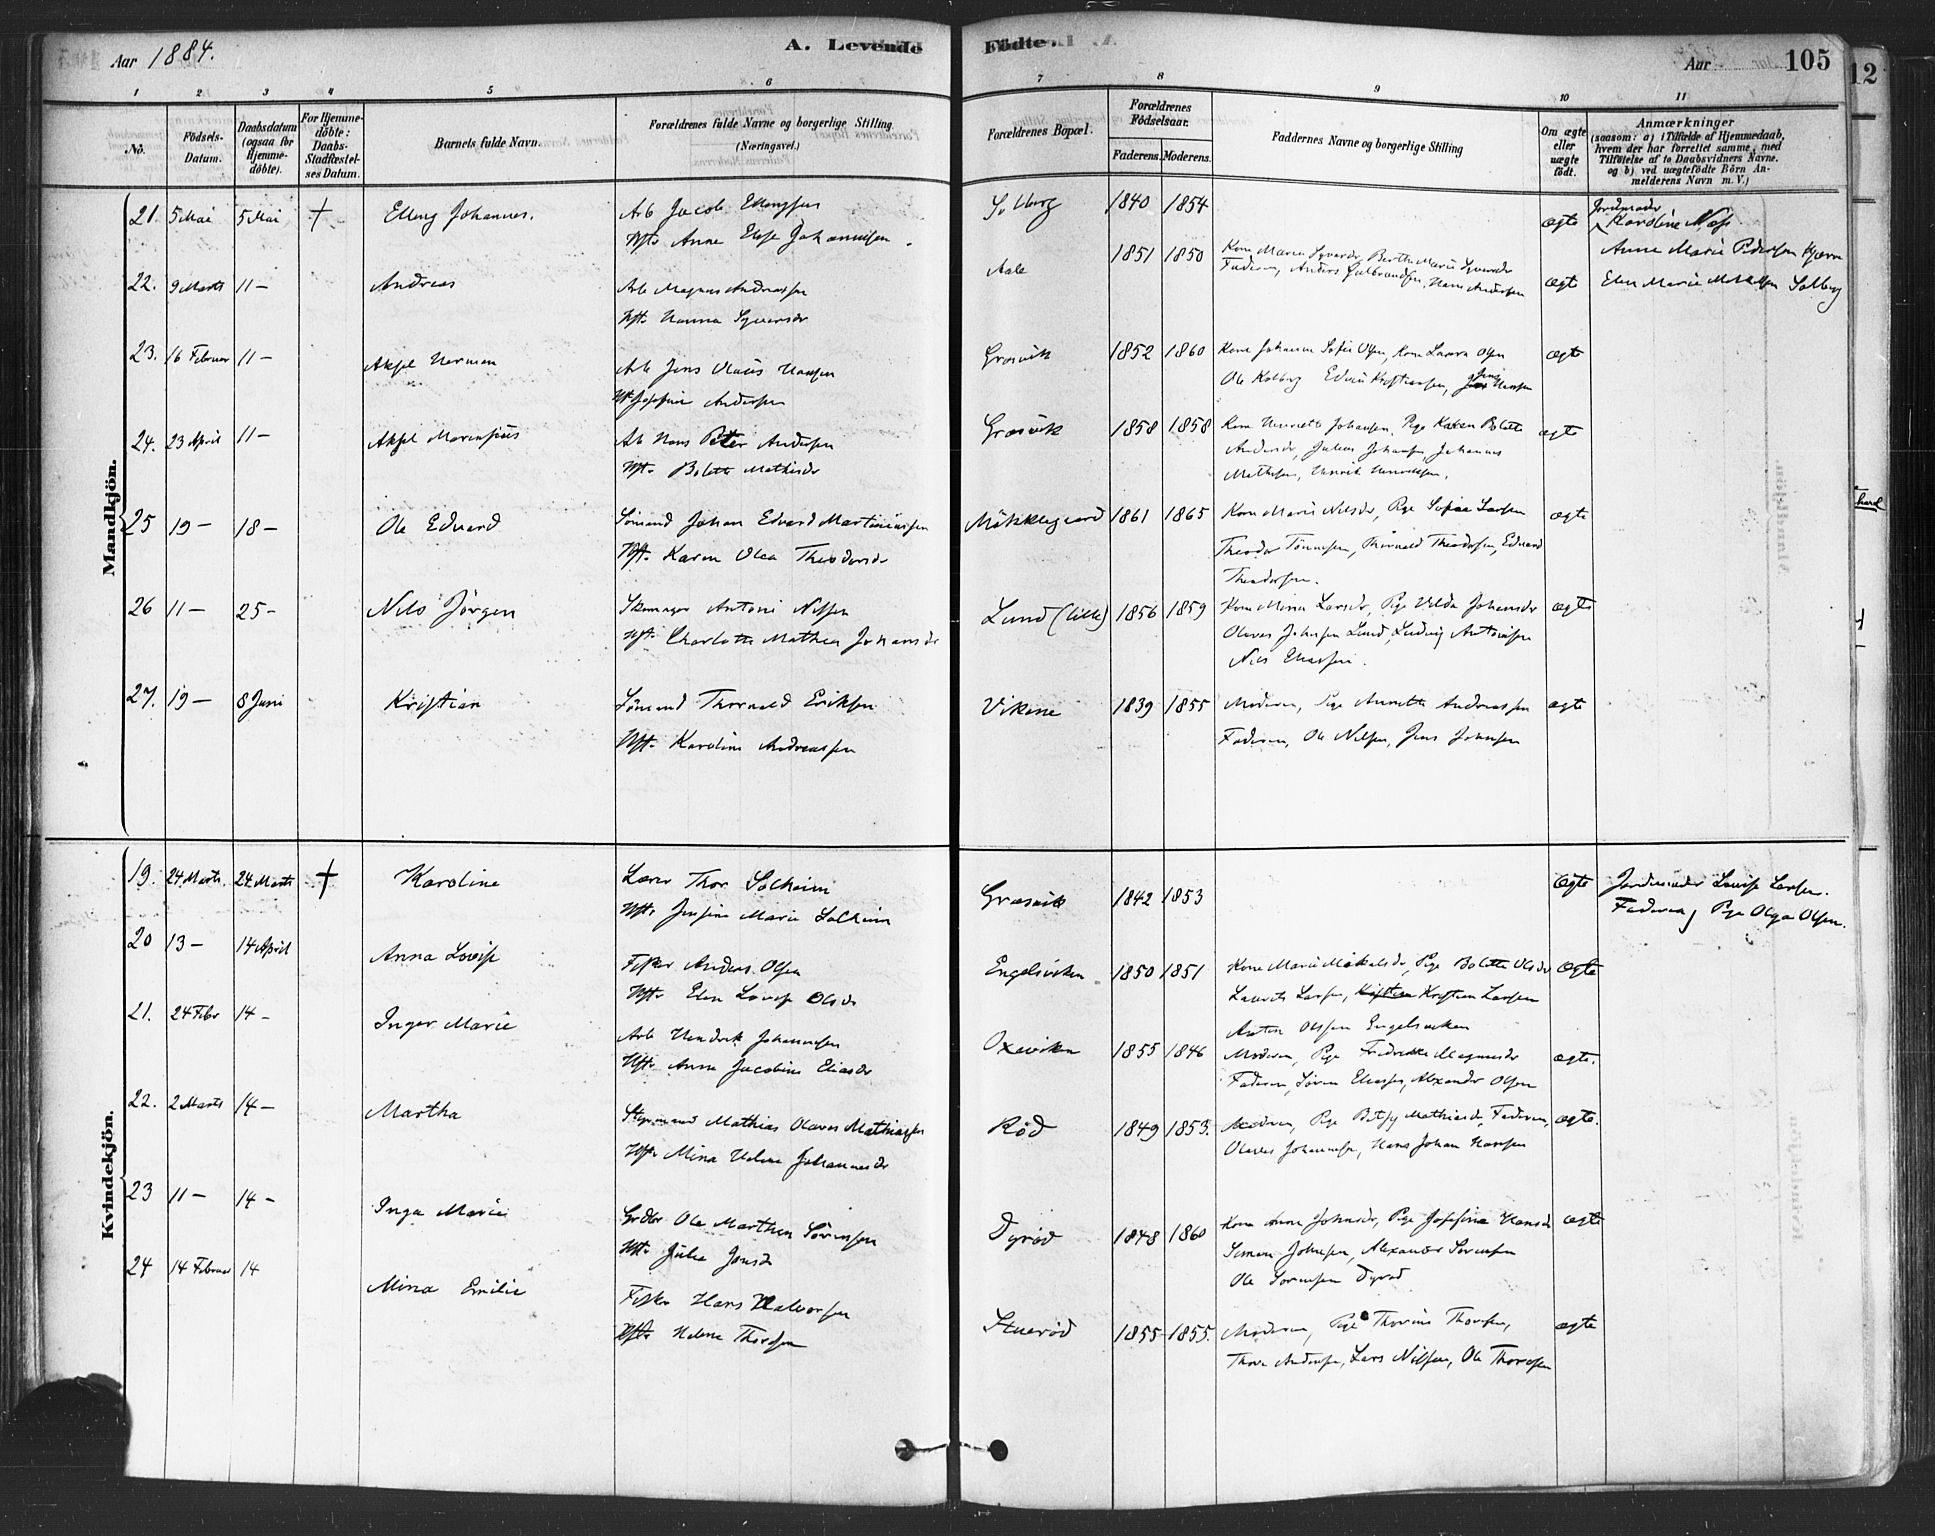 Aar 1884.
A. Levende Fødte.
Aar 105
12
1 2 3 4 5 6 7 8 9 10 11
No.
Fødsels-Datum.
Daabsdatum (ogsaa for Hjemmedøbte).
For Hjemmedøbte: Daabs-Stadfæstelses Datum.
Barnets fulde Navn.
Forældrenes fulde Navne og borgerlige Stilling. (Næringsvei.)
Forældrenes Bopæl.
Forældrenes Fødselsaar.
Faderens. Moderens.
Faddernes Navne og borgerlige Stilling
Om ægte eller uægte født.
Anmærkninger
(saasom: a) i Tilfælde af Hjemmedaab,
hvem der har forrettet samme, med
Tilføielse af to Daabsvidners Navne.
og b) ved uægtefødte Børn Anmelderens Navn m. V.)
Mandkjön.
21. 5 Mai 5 Mai † Elling Johannes.
Arb Jacob Ellingsen
Hft. Anne Else Johannesen.
Solberg 1840 1854 ægte
Jordmoder Karoline Næss
Anne Marie Pedersen Kjærre
Elen Marie Solberg
22. 9 Marts 11 – Andreas
Arb Magnus Andreassen
Hft. Hanna Syversdr
Aale 1851 1850
Kone Maren Syversdr, Berthe Marie Syversdr
Faderen, Anders Gulbrandsen, Hans Andersen
ægte
23. 16 Februar 11 – Aksel Herman
Arb Jens Olaus Hansen
Hft. Josefine Andersen
Græsvik 1852 1860
Kone Johanne Sofie Olsen, Kone Laura Olsen
Ole Kolberg Edvin Kristiansen, Jens Hansen
ægte
24. 23 April 11 – Aksel Marensius
Arb Hans Peter Andersen
Hft. Bolette Mathisdr
Græsvik 1858 1858
Kone Henriette Johansen, Pige Karen Bolette
Andersdr, Julius Johansen, Johannes
Mathisen, Henrik Henriksen.
ægte
25 19 – 18 – Ole Edvard
Sømand Johan Edvard Martiniussen
Hft. Karen Olea Theodorsdr
Mökklegaard 1861 1865
Kone Marie Nilsdr, Pige Sofie Larsen
Theodor Tönnesen, Thorvald Theodorsen, Edvard
Theodorsen.
ægte
26 11 – 25 – Nils Jørgen
Skomager Antoni Nilsen
Hft. Charlotte Mathea Johansdr
Lund (lille) 1856 1859
Kone Mina Larsdr, Pige Hilda Johansdr
Olaves Johnsen Lund, Ludvig Antonisen
Nils Eliassen.
ægte
27. 19 – 8 Juni Kristian
Sömand Thorvald Eriksen
Hft. Karoline Andreassen
Vikene 1839 1855
Moderen, Pige Annette Andreassen
Faderen, Ole Nilsen, Jens Johnsen
ægte
Kvindekjön.
19. 24 Marts. 24 Marts † Karoline
Lærer Thor Solheim
Hft. Josefine Marie Solheim
Græsvik 1842 1853 ægte
Jordmoder Lovise Larsen.
Faderen, Pige Olga Olsen.
20 13 – 14 April Anna Lovise
Fisker Anders Olsen
Hft. Elen Lovise Olsdr
Engelsviken 1850 1851
Kone Marie Mikalsdr, Pige Bolette Olsdr
Laurits Larsen, Kristian Larsen
Anton Olsen Engelsviken
ægte
21. 24 Febr 14 – Inger Marie
Arb Hendrik Johannesen
Hft. Anne Jacobine Eliasdr
Oxeviken 1855 1846
Moderen, Pige Fredrikke Magnusdr
Faderen, Sören Eliassen, Alexander Olsen
ægte.
22. 2 Marts 14 – Martha
Styrmand Mathias Olaves Mathiassen
Hft. Mina Helene Johannesdr
Röd 1849 1853.
Moderen, Pige Betsy Mathiasdr, Faderen,
Olaves Johannesen, Hans Johan Hansen
ægte.
23 11 – 14 – Inga Marie
Grdbr Ole Marthin Sörensen
Hft. Julie Jensdr
Dyröd 1848 1860
Kone Anne Johnsdr, Pige Josefine Hansdr
Simon Johnsen, Alexander Sörensen
Ole Sörensen Dyröd
ægte
24 14 Februar 14 Mina Emilie
Fisker Hans Halvorsen
Hft. Helene Thoresen
Stueröd 1855 1855.
Moderen, Pige Thorine Thoresen,
Thore Andersen, Lars Nilsen, Ole Thoresen
ægte